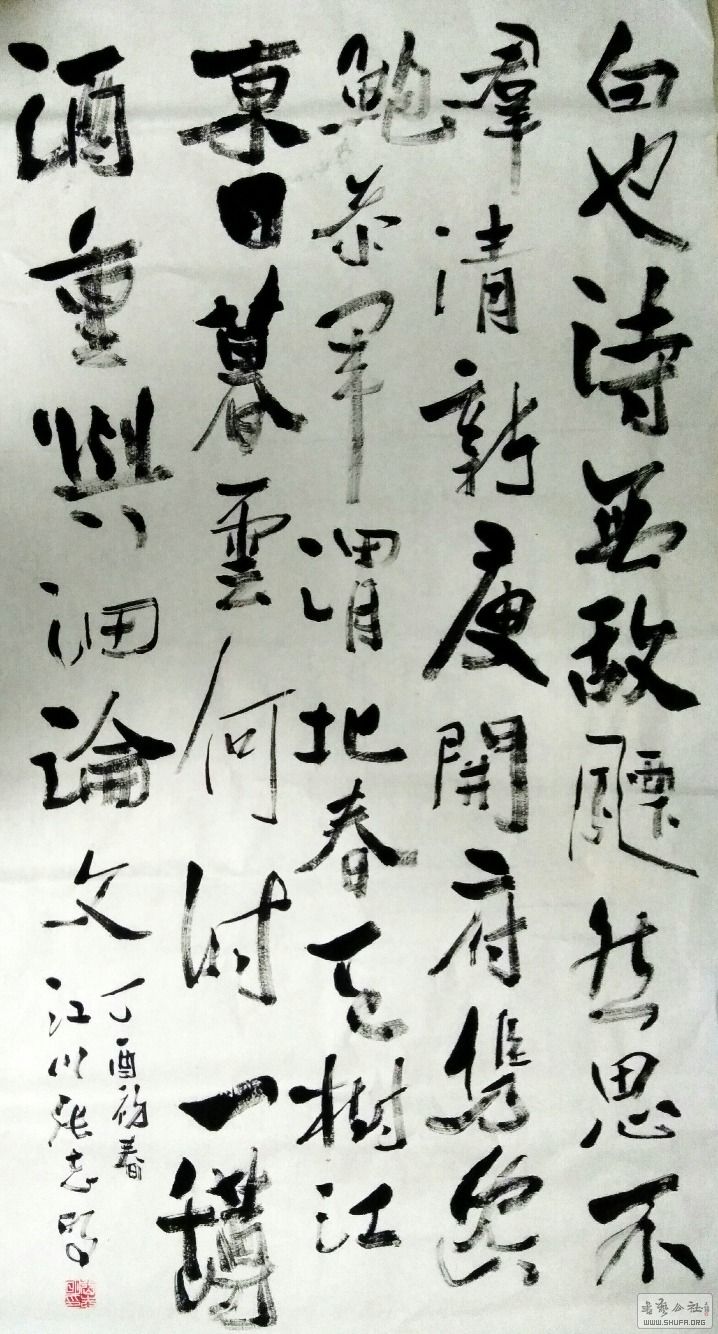 白也詩無敵飃然思不
羣清新庾開府儁逸
鮑參軍渭北春天樹江
東日暮雲何時一罇
酒重與細論文
丁酉初春
江川張志
書藝公社
WWW.SHUFA.ORG